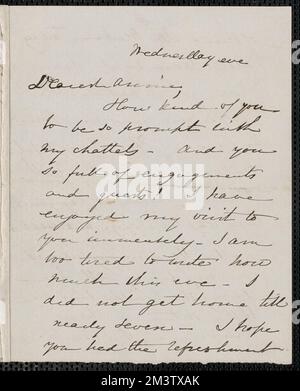 Wednesday eve
Dearest Annie,
How kind of you
to be so prompt with
my chattels - And you
so full of engagements
and guests! I have
enjoyed my visit to
you immensely - I am
too tired to write how
much this eve - I
did not get home till
nearly seven - I hope
you had the refreshment
alamy
Image ID: 2M3TXAK
www.alamy.com